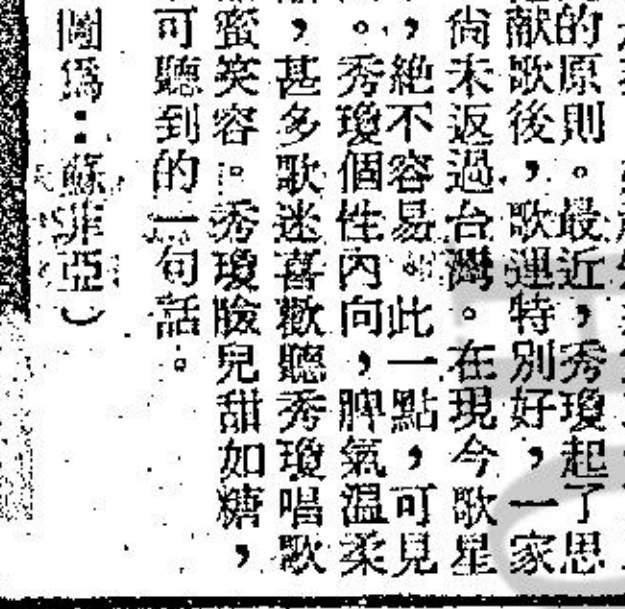 的原則。最近，秀瓊起了思
献歌後，歌運特別好，一家
尚未返過台灣。在現今歌星
，絕不容易。此一點，可見
。秀瓊個性內向，脾氣溫柔
，甚多歌迷喜歡聽秀瓊唱歌
蜜笑容。秀瓊臉兒甜如糖，
可聽到的一句話。
圖爲：蘇非亞）